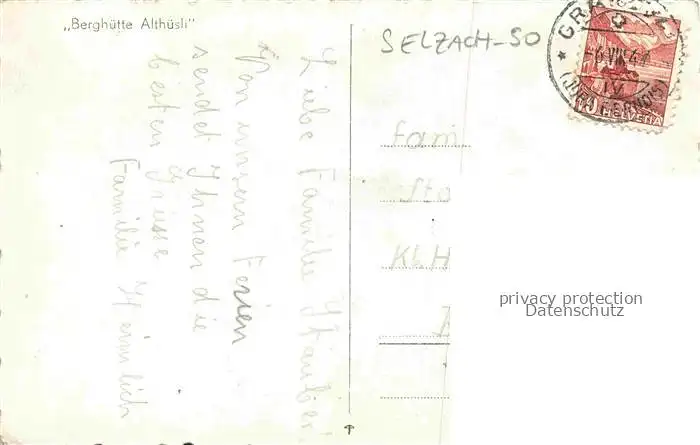 „Berghütte Althüsli"
SELZACH-SO
Liebe Familie Stauber!
Von unsern Ferien
sendet Ihnen die
besten Grüsse
Familie
Fam
Sta
Kl. H
HELVETIA
privacy protection
Datenschutz